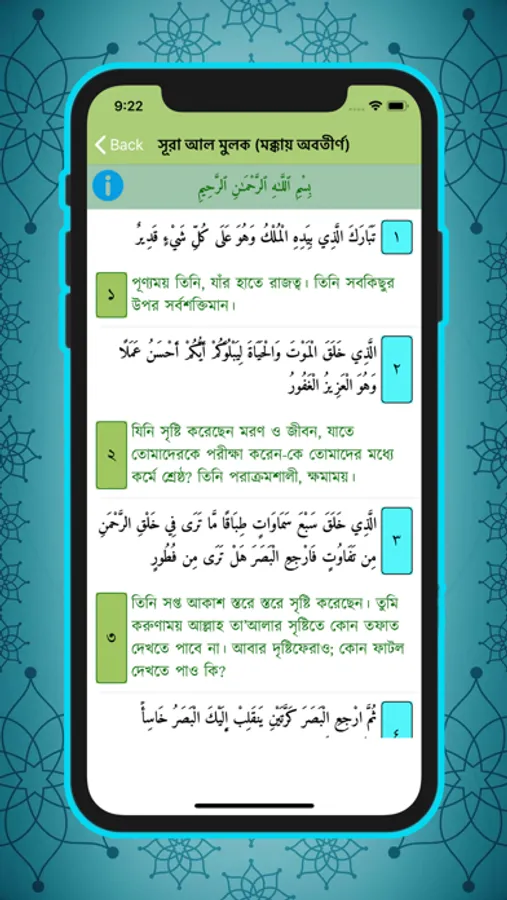 9:22
Back সূরা আল মুলক (মক্কায় অবতীর্ণ)
i بِسْمِ ٱللَّهِ ٱلرَّحْمَٰنِ ٱلرَّحِيمِ
تَبَارَكَ الَّذِي بِيَدِهِ الْمُلْكُ وَهُوَ عَلَى كُلِّ شَيْءٍ قَدِيرٌ ١
১ পূণ্যময় তিনি, যাঁর হাতে রাজত্ব। তিনি সবকিছুর
উপর সর্বশক্তিমান।
الَّذِي خَلَقَ الْمَوْتَ وَالْحَيَاةَ لِيَبْلُوَكُمْ أَيُّكُمْ أَحْسَنُ عَمَلًا ٢
وَهُوَ الْعَزِيزُ الْغَفُورُ
যিনি সৃষ্টি করেছেন মরণ ও জীবন, যাতে
২ তোমাদেরকে পরীক্ষা করেন-কে তোমাদের মধ্যে
কর্মে শ্রেষ্ঠ? তিনি পরাক্রমশালী, ক্ষমাময়।
الَّذِي خَلَقَ سَبْعَ سَمَاوَاتٍ طِبَاقًا مَّا تَرَى فِي خَلْقِ الرَّحْمَنِ ٣
مِن تَفَاوُتٍ فَارْجِعِ الْبَصَرَ هَلْ تَرَى مِن فُطُورٍ
তিনি সপ্ত আকাশ স্তরে স্তরে সৃষ্টি করেছেন। তুমি
করুণাময় আল্লাহ তা'আলার সৃষ্টিতে কোন তফাত
৩ দেখতে পাবে না। আবার দৃষ্টিফেরাও; কোন ফাটল
দেখতে পাও কি?
ثُمَّ ارْجِعِ الْبَصَرَ كَرَّتَيْنِ يَنقَلِبْ إِلَيْكَ الْبَصَرُ خَاسِأً ٤